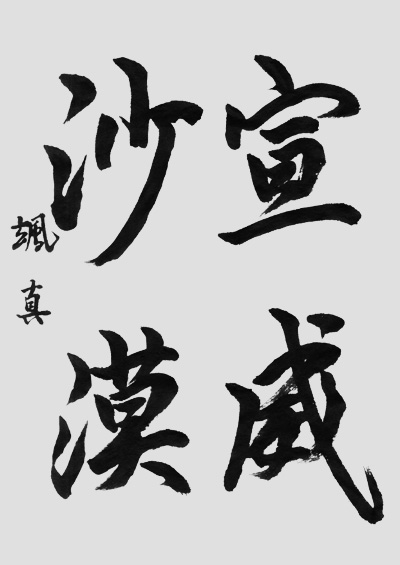 宣威
沙漠
颯真